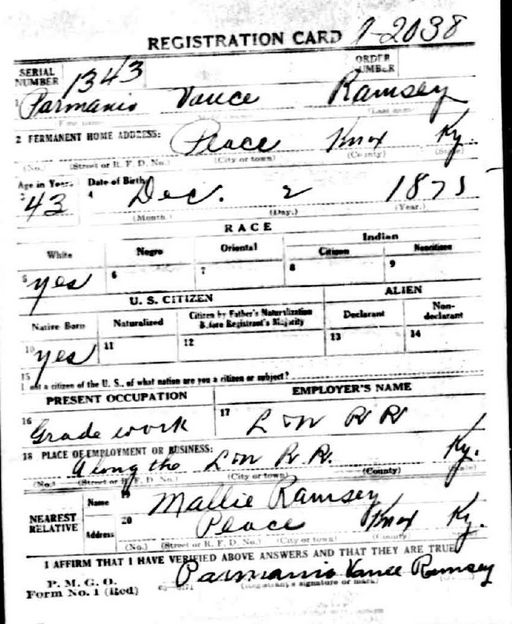 REGISTRATION CARD 1-2038
SERIAL NUMBER 1343 ORDER NUMBER
1 Parmanio Vance Ramsey
(Last name)
2 PERMANENT HOME ADDRESS: Peace Knox Ky.
(No.) (Street or R. F. D. No.) (City or town) (County) (State)
Age in Years Date of Birth
3 43 4 Dec. 2 1875
(Month.) (Day.) (Year.)
RACE
White Negro Oriental Indian
Citizen Noncitizen
5 yes 6 7 8 9
U. S. CITIZEN ALIEN
Native Born Naturalized Citizen by Father's Naturalization Before Registrant's Majority Declarant Non-declarant
10 yes 11 12 13 14
15
If not a citizen of the U. S., of what nation are you a citizen or subject?
PRESENT OCCUPATION EMPLOYER'S NAME
16 Grade work 17 L & N R R
18 PLACE OF EMPLOYMENT OR BUSINESS:
Along the L & N R. R. Ky.
(No.) (Street or R. F. D. No.) (City or town) (County) (State)
NEAREST RELATIVE Name 19 Mallie Ramsey
Address 20 Peace Knox Ky.
(No.) (Street or R. F. D. No.) (City or town) (County) (State)
I AFFIRM THAT I HAVE VERIFIED ABOVE ANSWERS AND THAT THEY ARE TRUE
P. M. G. O.
Form No. 1 (Red) Parmanio Vance Ramsey
(Registrant's signature or mark)